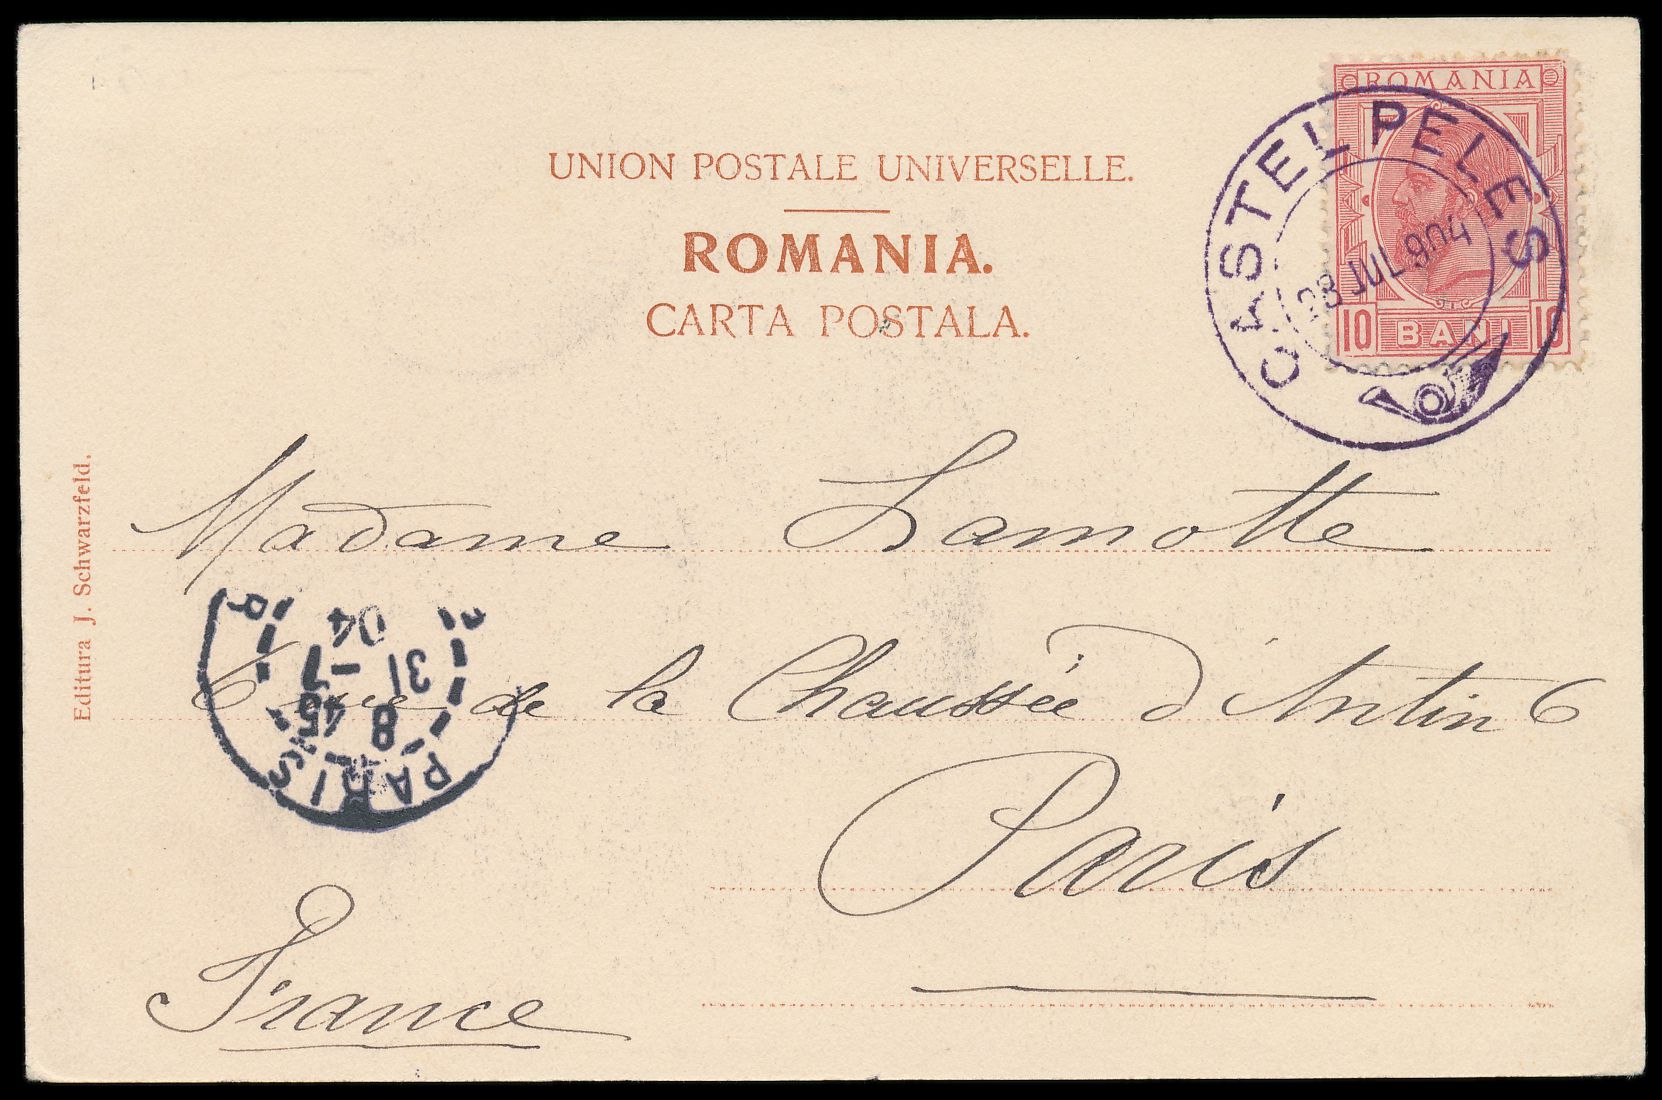 ROMANIA
10 BANI 10
CASTEL PELES
28 JUL 904
UNION POSTALE UNIVERSELLE.
ROMANIA.
CARTA POSTALA.
Editura J. Schwarzfeld.
Madame Lamotte
6 rue de la Chaussée d'Antin 6
Paris
France
PARIS
8 45
31 - 7
04